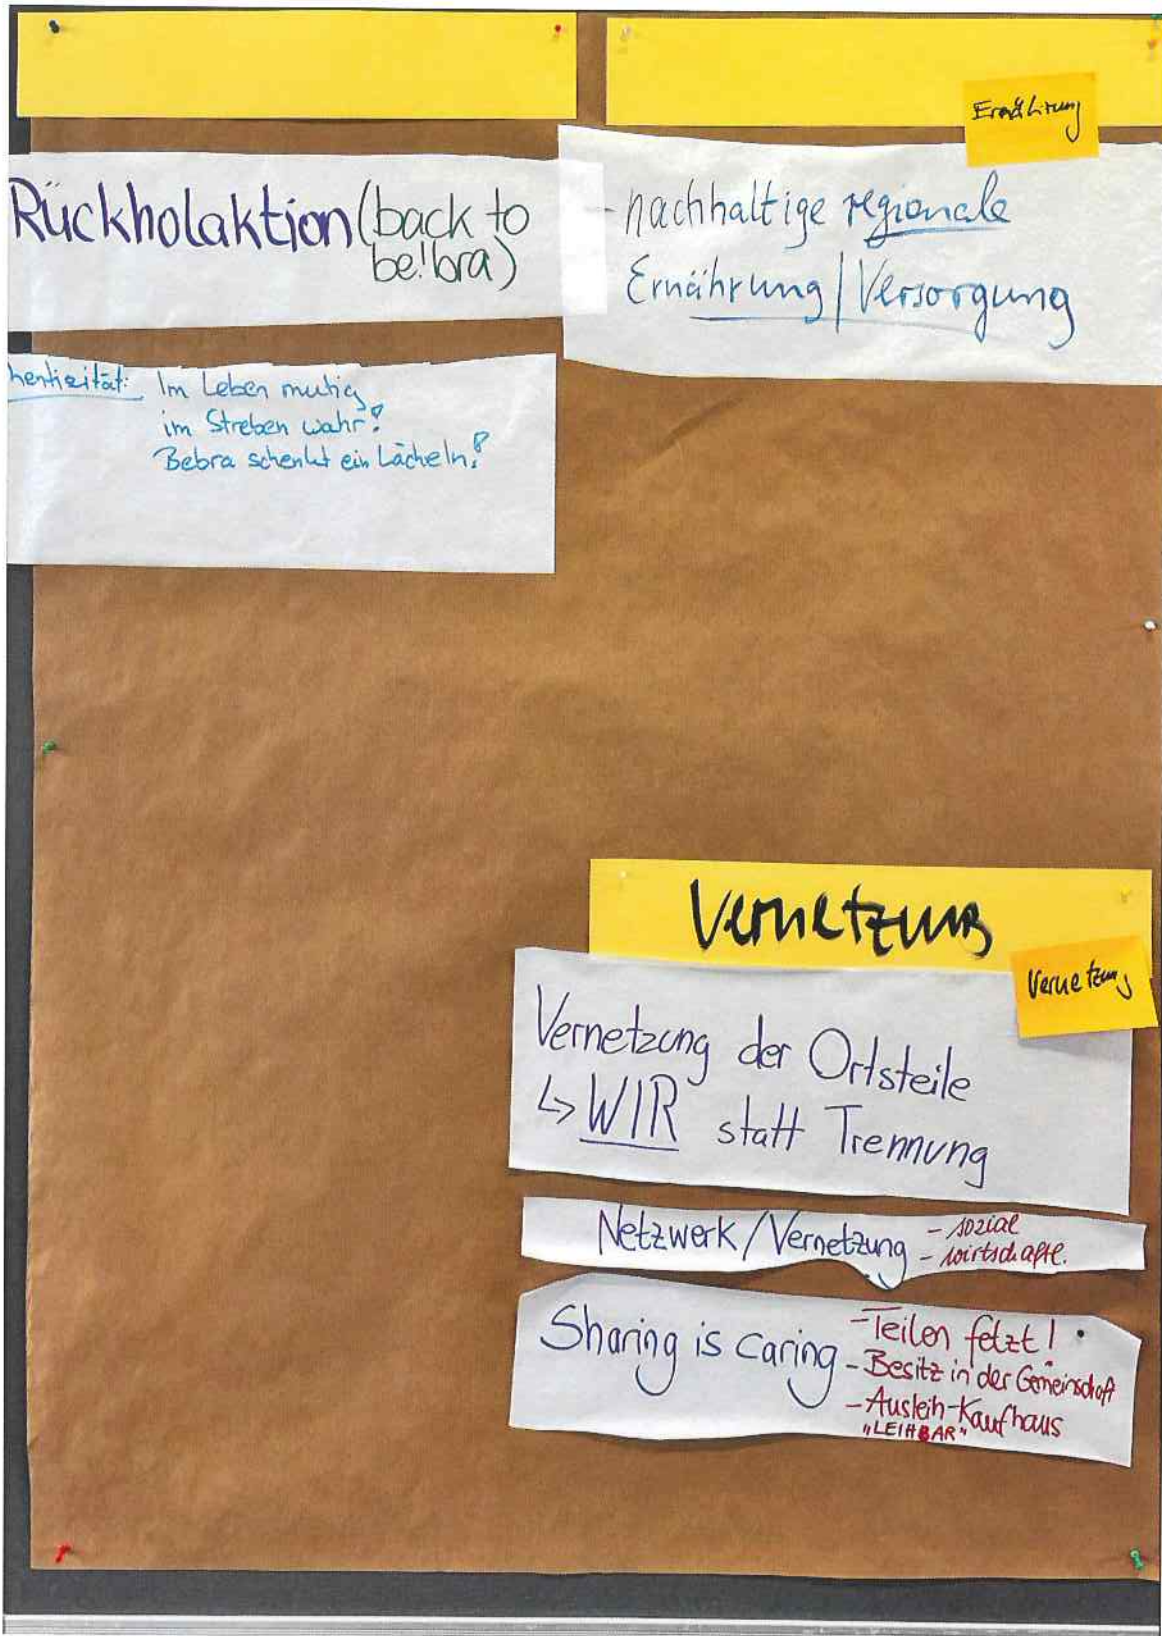 Rückholaktion (back to
be!bra)
hentizität: Im Leben mutig
im Streben wahr!
Bebra schenkt ein Lächeln!
Ernährung
- nachhaltige regionale
Ernährung / Versorgung
Vernetzung
Vernetzung
Vernetzung der Ortsteile
↳ WIR statt Trennung
Netzwerk / Vernetzung - sozial
- wirtschaftl.
Sharing is caring - Teilen fetzt!
- Besitz in der Gemeinschaft
- Ausleih-Kaufhaus
"LEIHBAR"